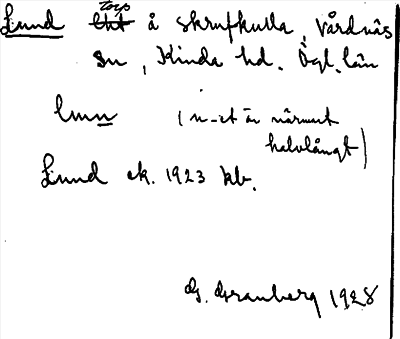 Lund torp å Skrufkulla, Vårdnäs
sn, Kinda hd. Ögl. län
lunn (n-et är närmast
halvlångt)
Lund ek. 1923 kb.
G. Granberg 1928